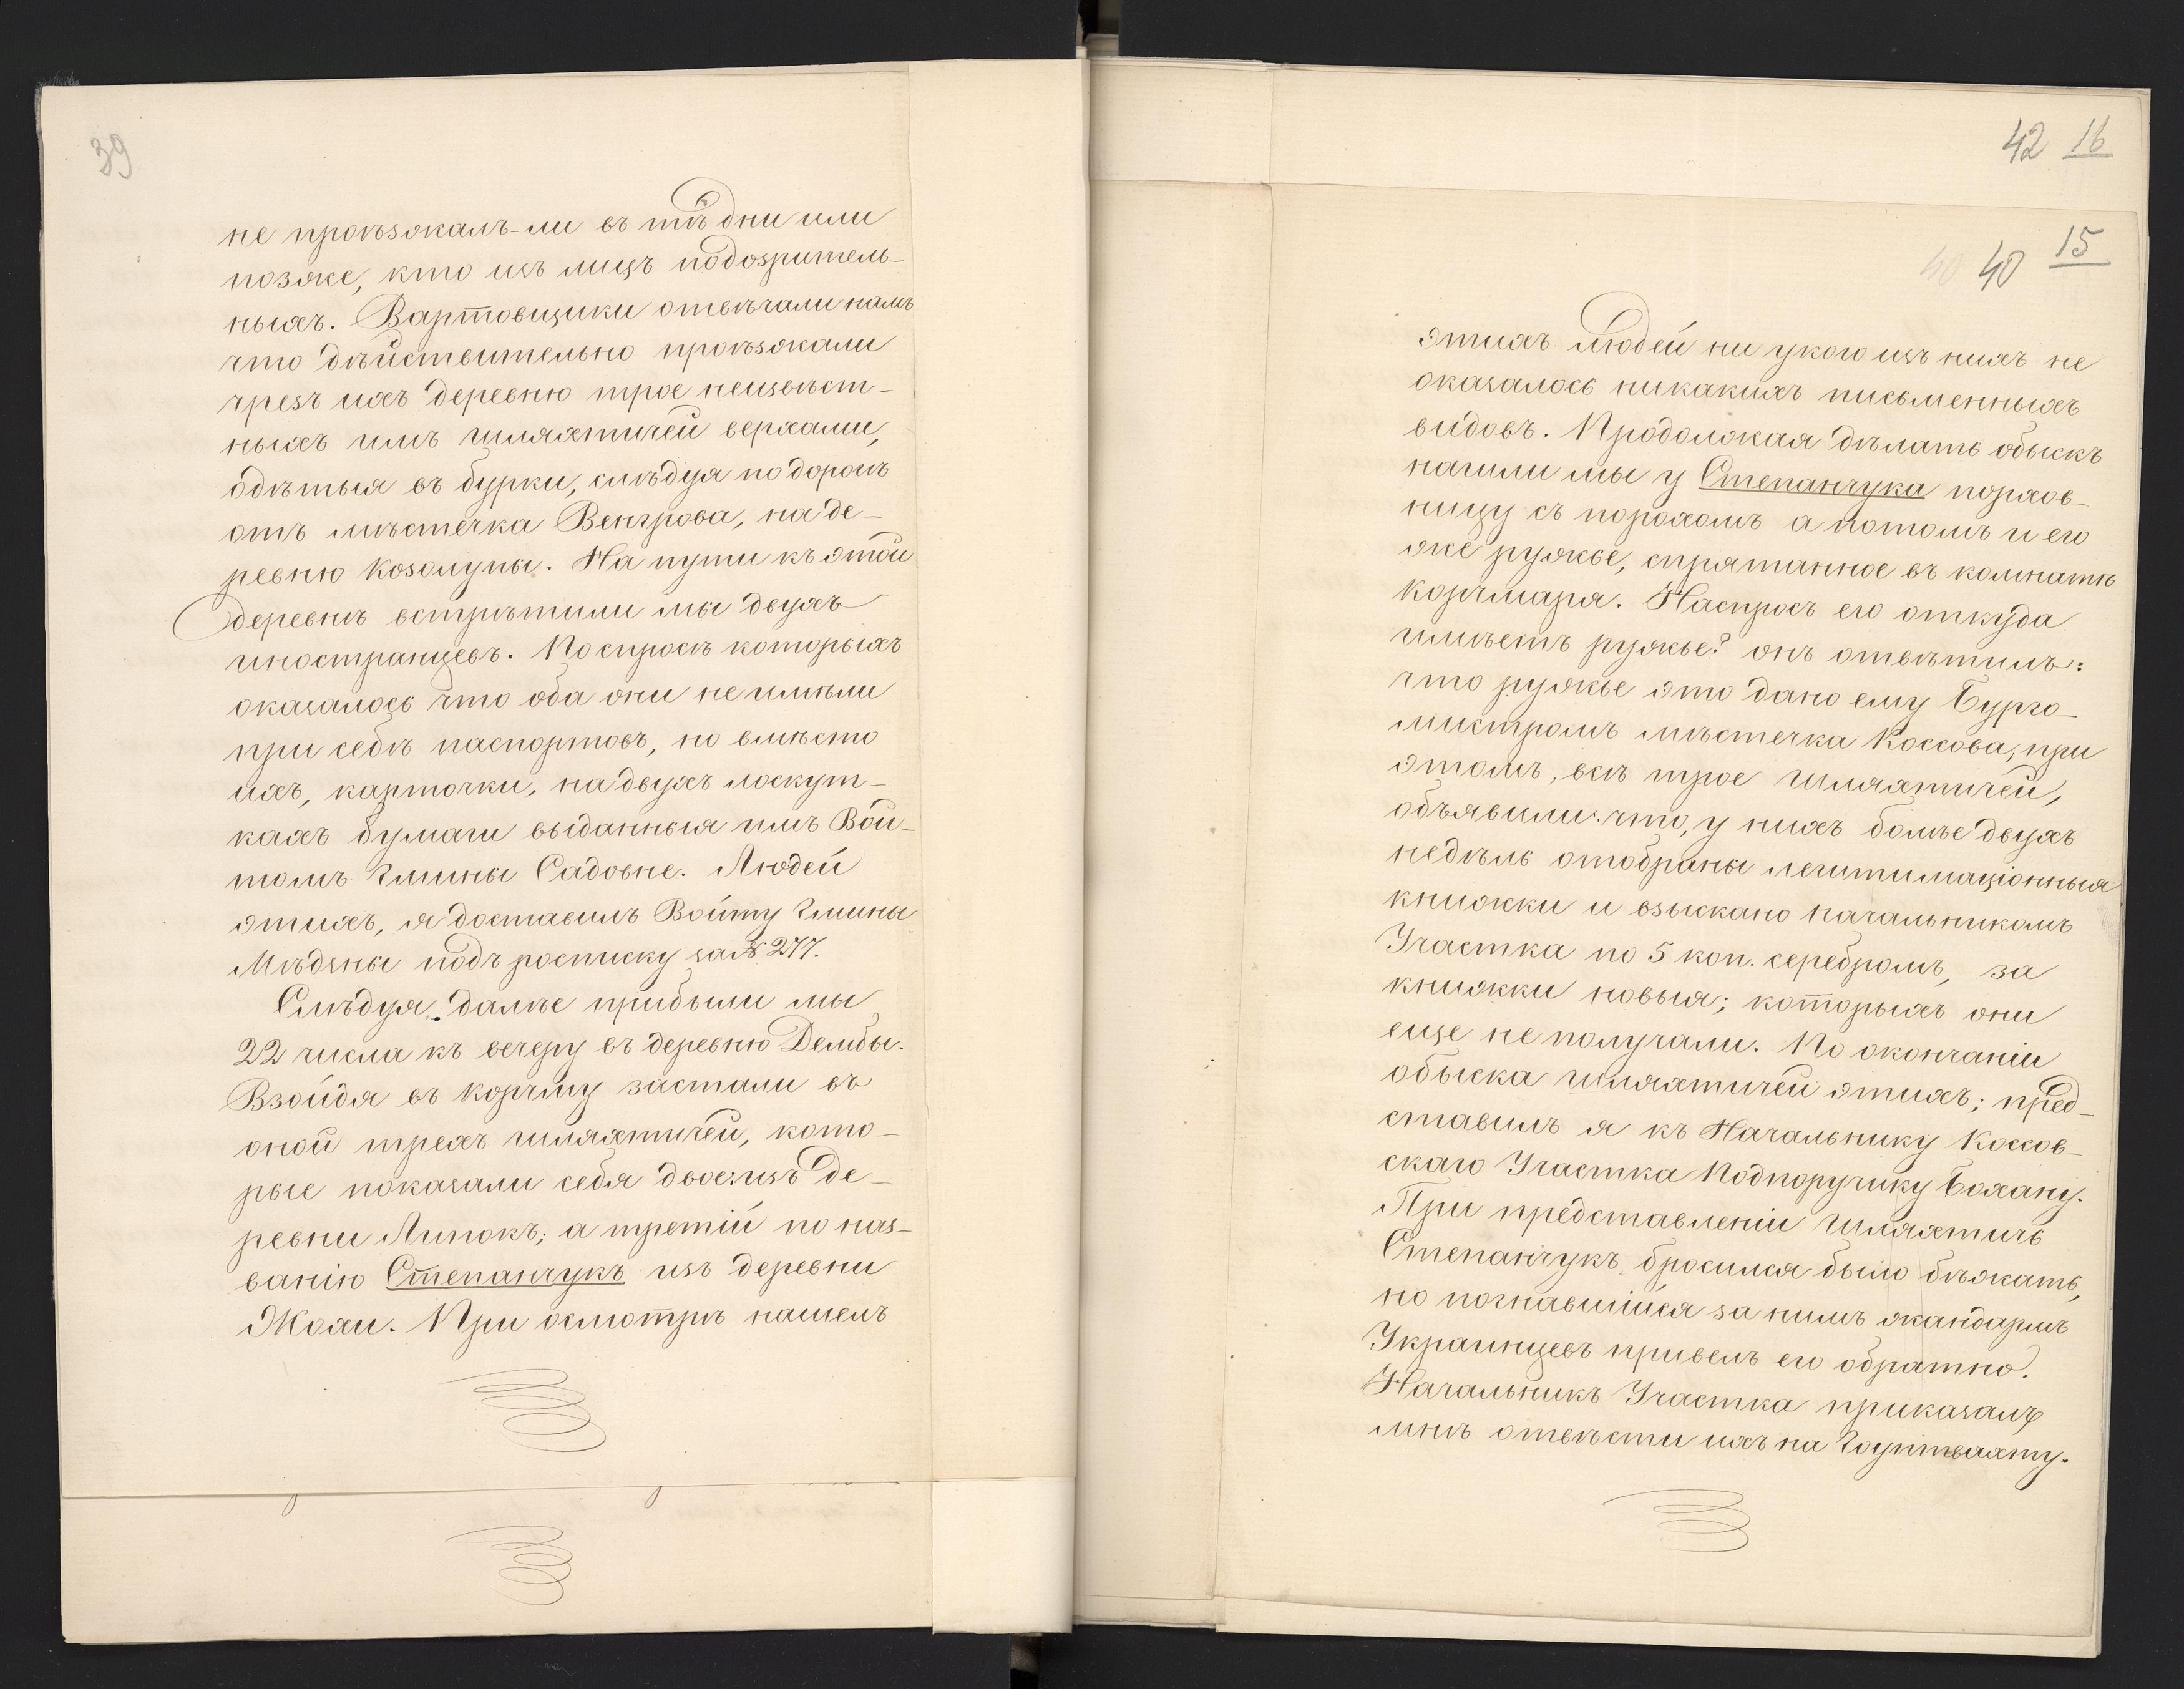 39
не проѣзжалъ-ли въ тѣ дни или
позже, кто изъ лицъ подозритель-
ныхъ. Вартовщики отвѣчали намъ
что дѣйствительно проѣзжали
чрезъ ихъ деревню трое неизвѣст-
ныхъ имъ шляхтичей верхами,
одѣтыя въ бурки, слѣдуя по дорогѣ
отъ мѣстечка Венгрова, на де-
ревню Козолупы. На пути къ этой
деревнѣ встрѣтили мы двухъ
иностранцевъ. По спросѣ которыхъ
оказалось что оба они не имѣли
при себѣ паспортовъ, но вмѣсто
ихъ, карточки, на двухъ лоскут-
кахъ бумаги выданныя имъ Вой-
томъ гмины Садовне. Людей
этихъ, я доставилъ Войту гмины
Мѣдзны подъ росписку за № 277.
Слѣдуя далѣе прибыли мы
22 числа къ вечеру въ деревню Дембы.
Взойдя въ корчму застали въ
оной трехъ шляхтичей, кото-
рые показали себя двое: изъ де-
ревни Липокъ; а третій по наз-
ванію Степанчукъ изъ деревни
Жохи. При осмотрѣ нашелъ
42 16
40 40 15
этихъ людей ни укого изъ нихъ не
оказалось никакихъ письменныхъ
видовъ. Продолжая дѣлать обыскъ
нашли мы у Степанчука порхов-
ницу съ порохомъ а потомъ и его
же ружье, спрятанное въ комнатѣ
корчмаря. Наспросъ его откуда
имѣетъ ружье? онъ отвѣтилъ:
что ружье это дано ему Бурго-
мистромъ мѣстечка Коссова, при
этомъ, всѣ трое шляхтичей,
объявили: что, у нихъ болѣе двухъ
недѣль отобраны легитимаціонныя
книжки и взыскано начальникомъ
Участка по 5 коп. серебромъ, за
книжки новыя; которыхъ они
еще не получали. По окончаніи
обыска шляхтичей этихъ; пред-
ставилъ я къ Начальнику Коссов-
скаго Участка Подпоручику Бохану.
При представленіи шляхтичъ
Степанчукъ бросился было бѣжать,
но погнавшійся за нимъ жандармъ
Украинцевъ привелъ его обратно.
Начальникъ Участка приказалъ
мнѣ отвѣсти ихъ на Гоуптвахту.